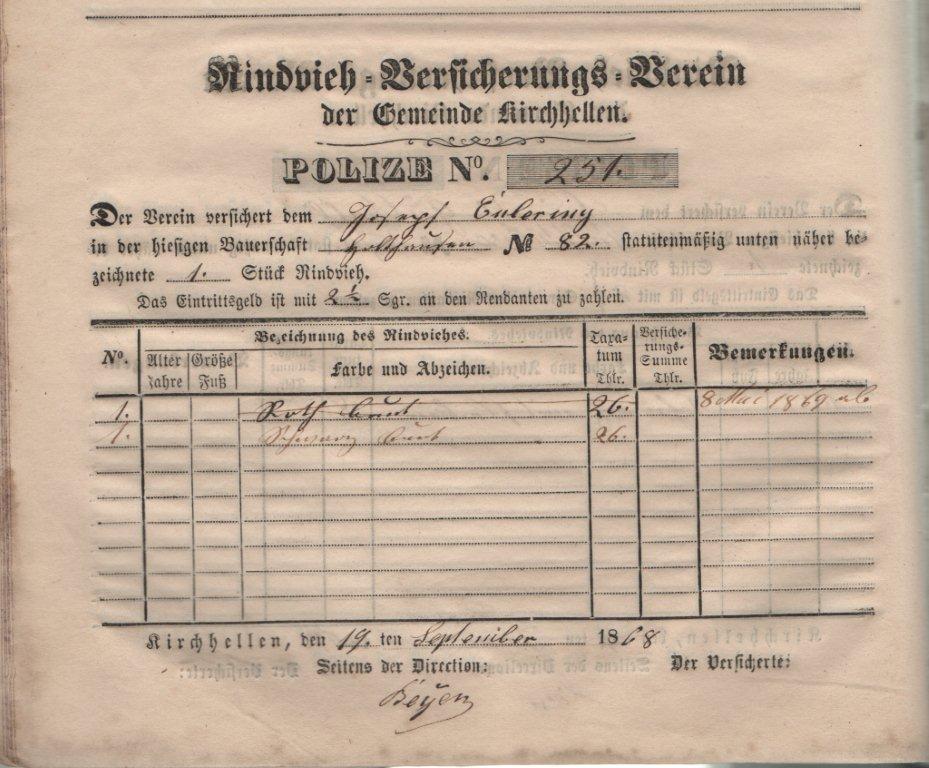 Rindvieh-Versicherungs-Verein
der Gemeinde Kirchhellen.
POLIZE No. 251.
Der Verein versichert dem Joseph Eulering
in der hiesigen Bauerschaft Holthausen № 82. statutenmäßig unten näher be-
zeichnete 1. Stück Rindvieh.
Das Eintrittsgeld ist mit 2½ Sgr. an den Rendanten zu zahlen.
No. Alter Jahre Größe Fuß Bezeichnung des Rindviehes. Farbe und Abzeichen. Taxatum Tblr. Versicherungs-Summe Tblr. Bemerkungen.
1. Roth bunt 26. 8 Mai 1869 ab
1. Schwarz bunt 26.
Kirchhellen, den 19. ten September 1868
Seitens der Direction: Der Versicherte: